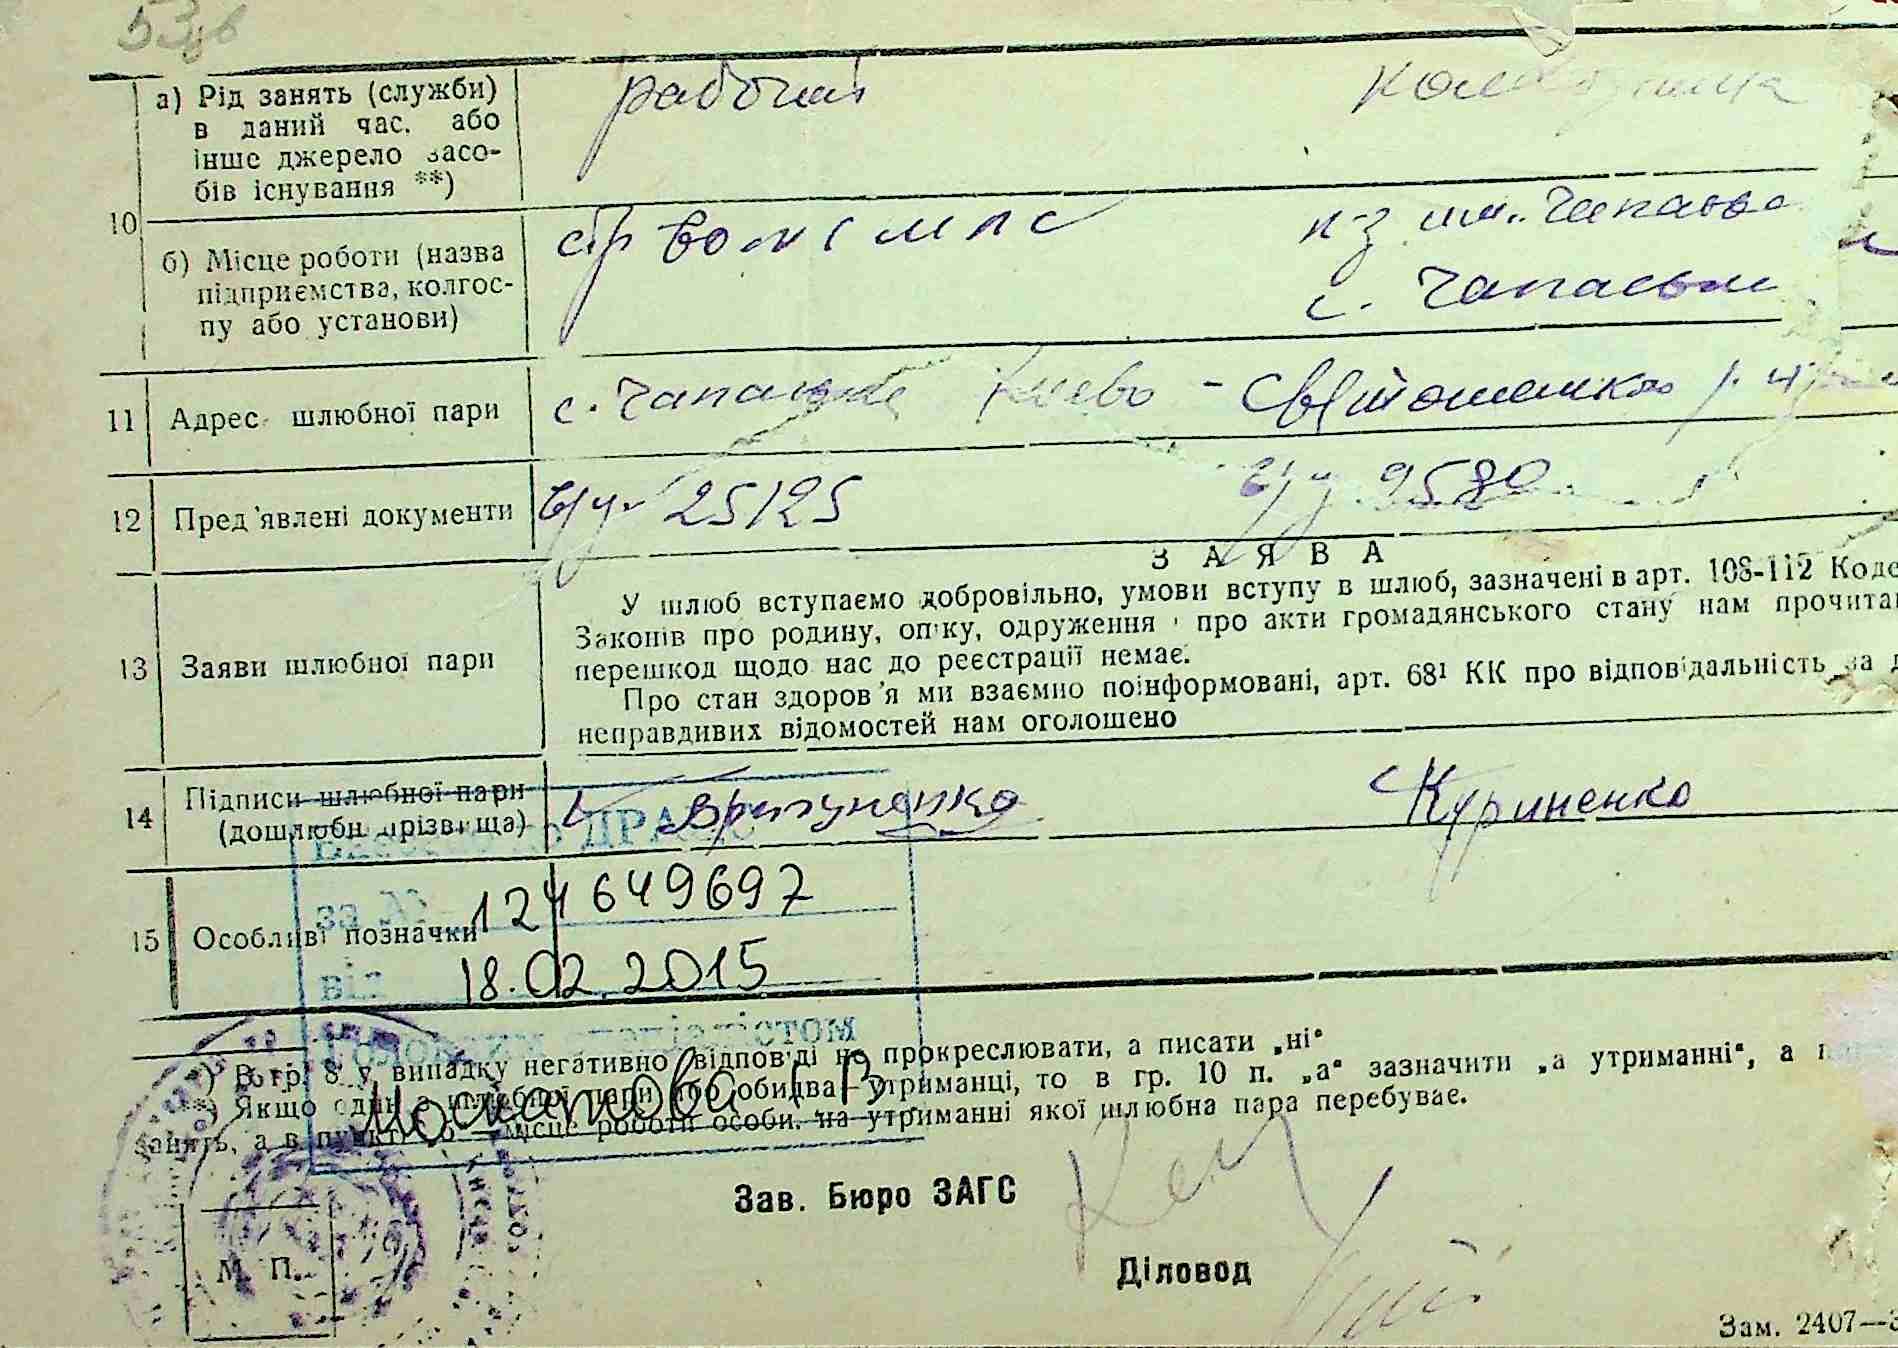 53зв
а) Рід занять (служби)
в даний час, або
інше джерело засо-
бів існування **)
рабочий
10
б) Місце роботи (назва
підприємства, колгос-
пу або установи)
к-з им. Чапаева
с. Чапаевка
11 Адрес шлюбної пари с. Чапаевка Киево - Святошинско
12 Пред'явлені документи 25125 9580
ЗАЯВА
13 Заяви шлюбної пари
У шлюб вступаємо добровільно, умови вступу в шлюб, зазначені в арт. 108-112 Коде
Законів про родину, опіку, одруження і про акти громадянського стану нам прочита
перешкод щодо нас до реєстрації немає.
Про стан здоров'я ми взаємно поінформовані, арт. 68¹ КК про відповідальність за д
неправдивих відомостей нам оголошено
14 Підписи шлюбної пари
(дошлюбні прізвища)
Куриненко
ДРАЦС
за № 124649697
15 Особливі позначки
від 18.02.2015
головним спеціалістом
*) В гр. 8 у випадку негативної відповіді не прокреслювати, а писати „ні“
**) Якщо один з шлюбної пари або обидва—утриманці, то в гр. 10 п. „а“ зазначити „а утриманні“, а
занять, а в пункті „б“—місце роботи особи, на утриманні якої шлюбна пара перебуває.
Зав. Бюро ЗАГС
М. П.
Діловод
Зам. 2407—3